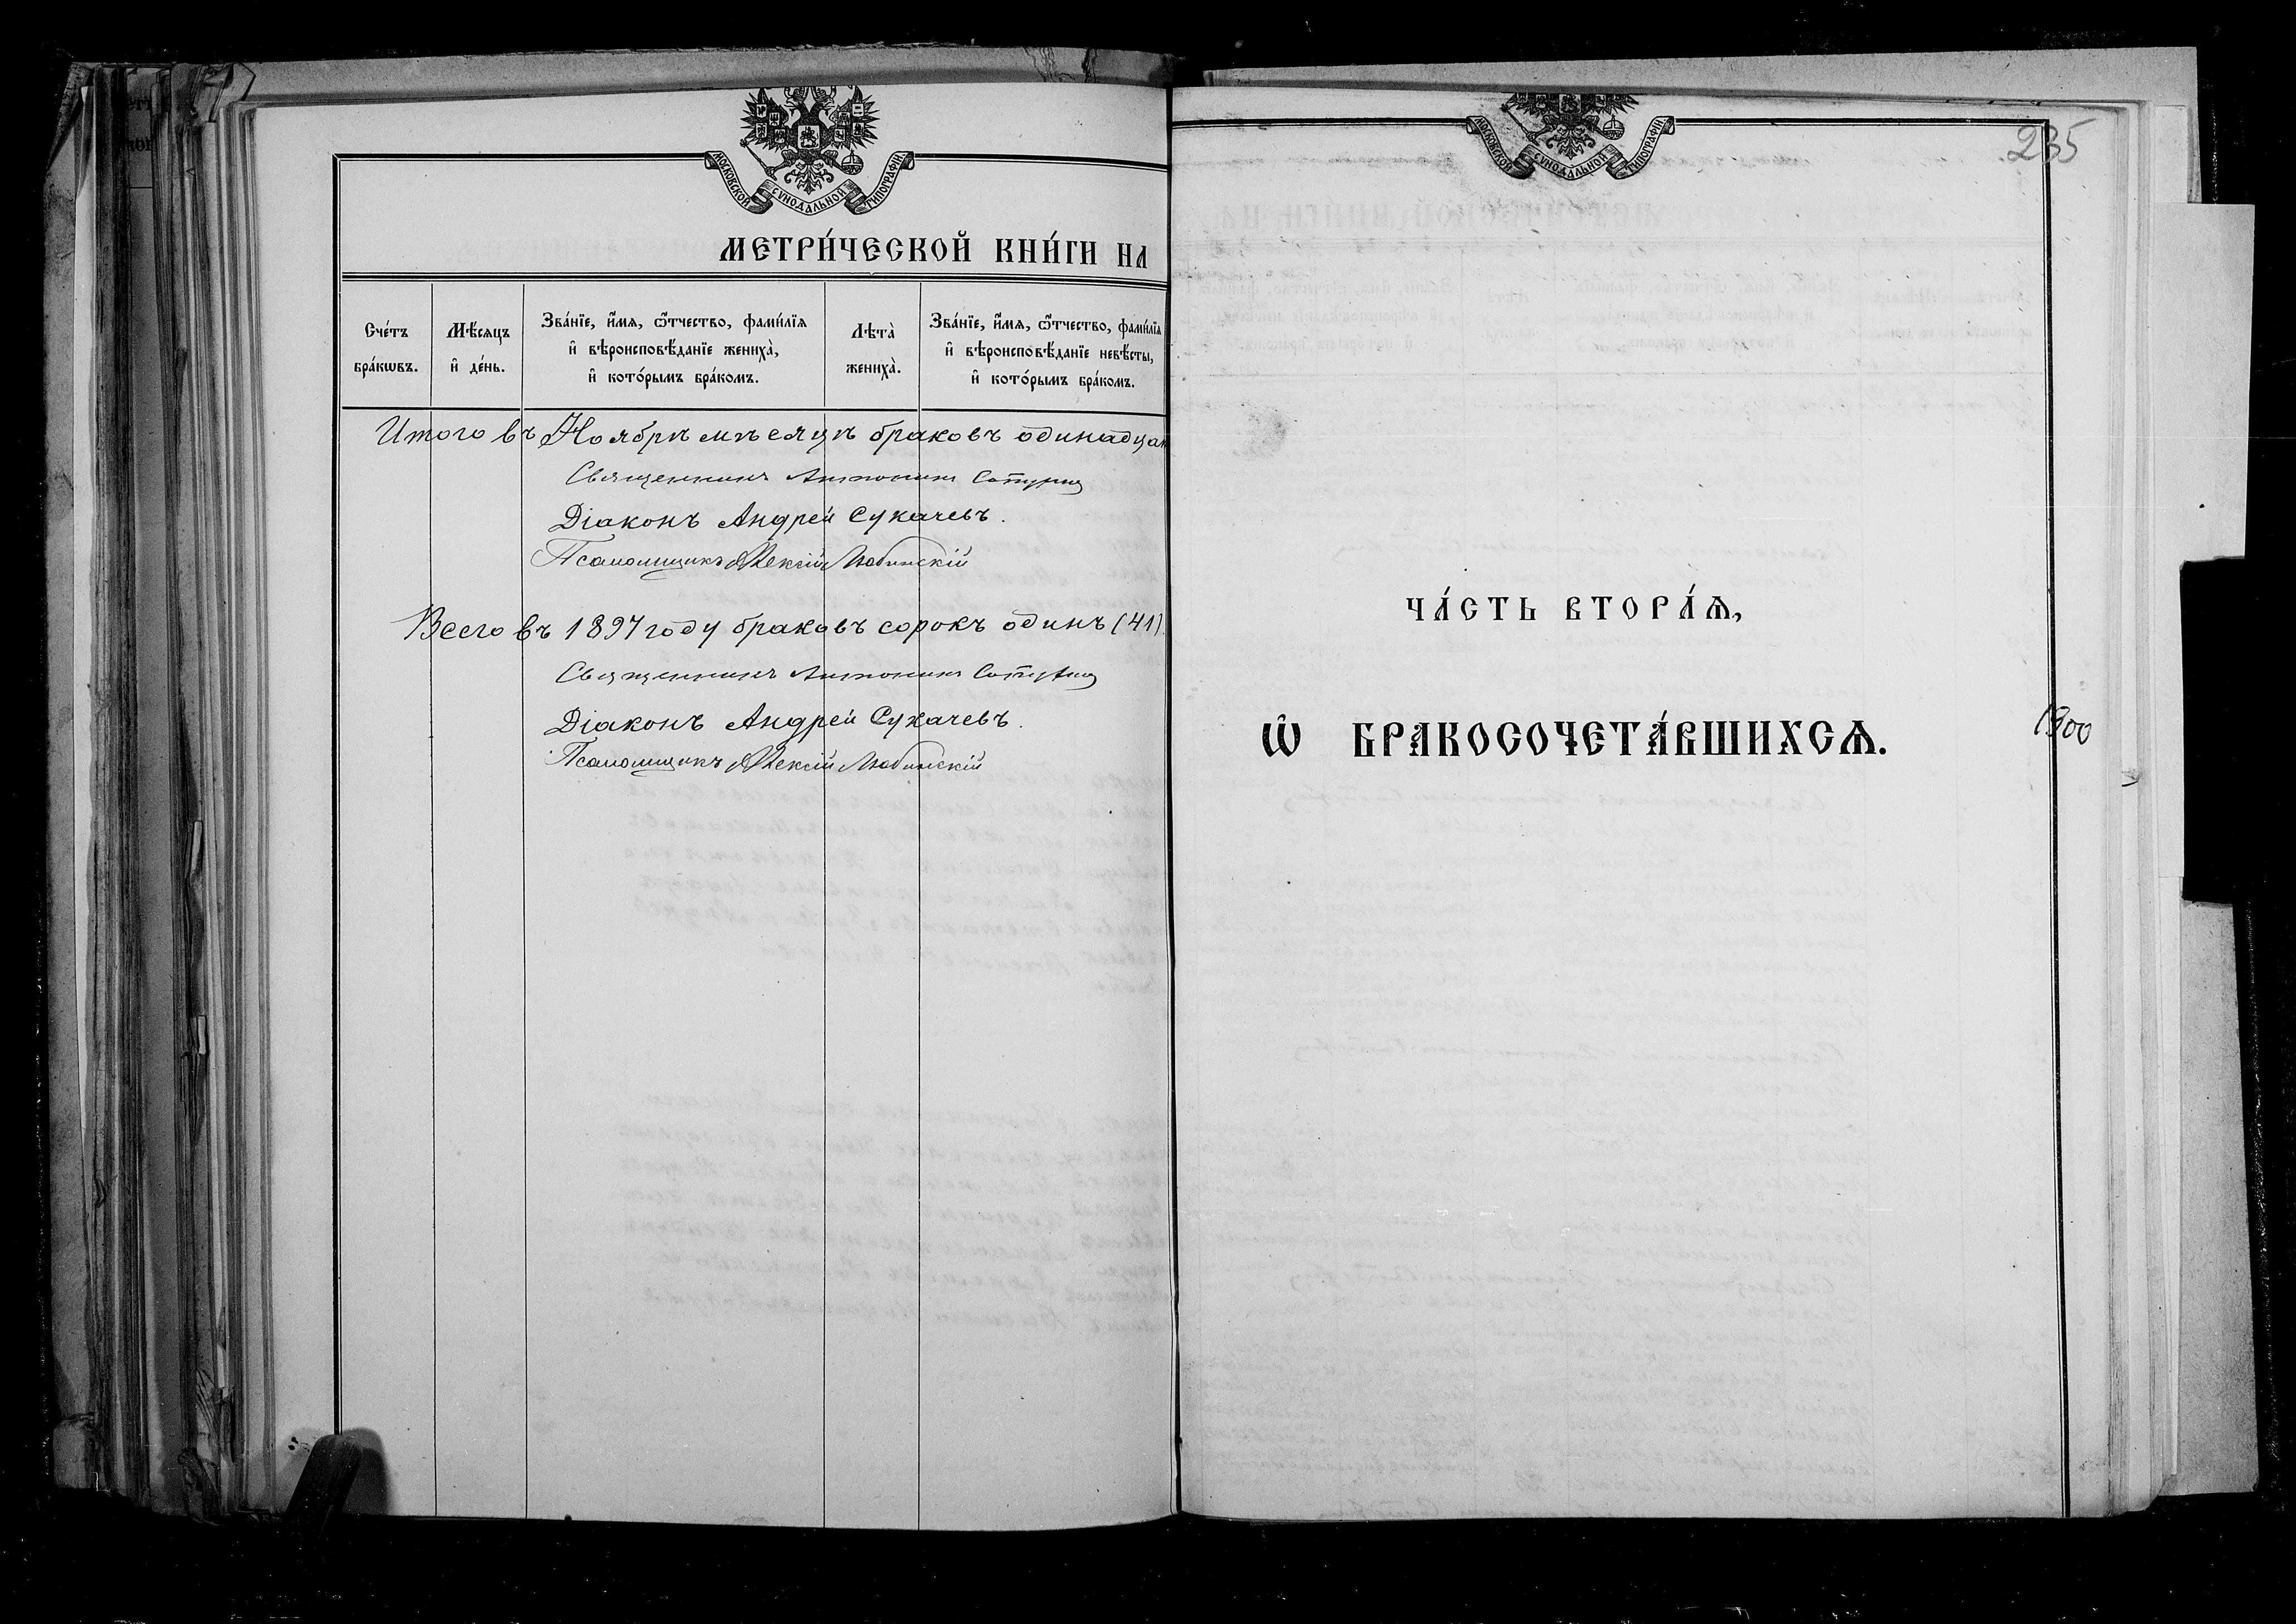 МОСКОВСКОЙ СѴНОДАЛЬНОЙ ТИПОГРАФІИ
МЕТРИ́ЧЕСКОЙ КНИ́ГИ НА
Сче́тъ бра́кѡвъ.
Мѣ́сяцъ и҆ де́нь.
Зва́нїе, и҆́мя, ѻ҆́тчество, фами́лїя
и҆ вѣроисповѣ́данїе жениха̀,
и҆ кото́рымъ бра́комъ.
Лѣта̀ жениха̀.
Зва́нїе, и҆́мя, ѻ҆́тчество, фами́лїя
и҆ вѣроисповѣ́данїе невѣ́сты,
и҆ кото́рымъ бра́комъ.
Итого въ Ноябрѣ мѣсяцѣ браковъ одинадцат
Священникъ Антонинъ
Діаконъ Андрей Сукачевъ.
Псаломщикъ Алексій Любинскій
Всего въ 1897 году браковъ сорокъ одинъ (41).
Священникъ Антонинъ
Діаконъ Андрей Сукачевъ.
Псаломщикъ Алексій Любинскій
МОСКОВСКОЙ СѴНОДАЛЬНОЙ ТИПОГРАФІИ
235
ЧА́СТЬ ВТОРА́Ѧ,
Ѡ҆ БРАКОСОЧЕТА́ВШИХСѦ.
1900